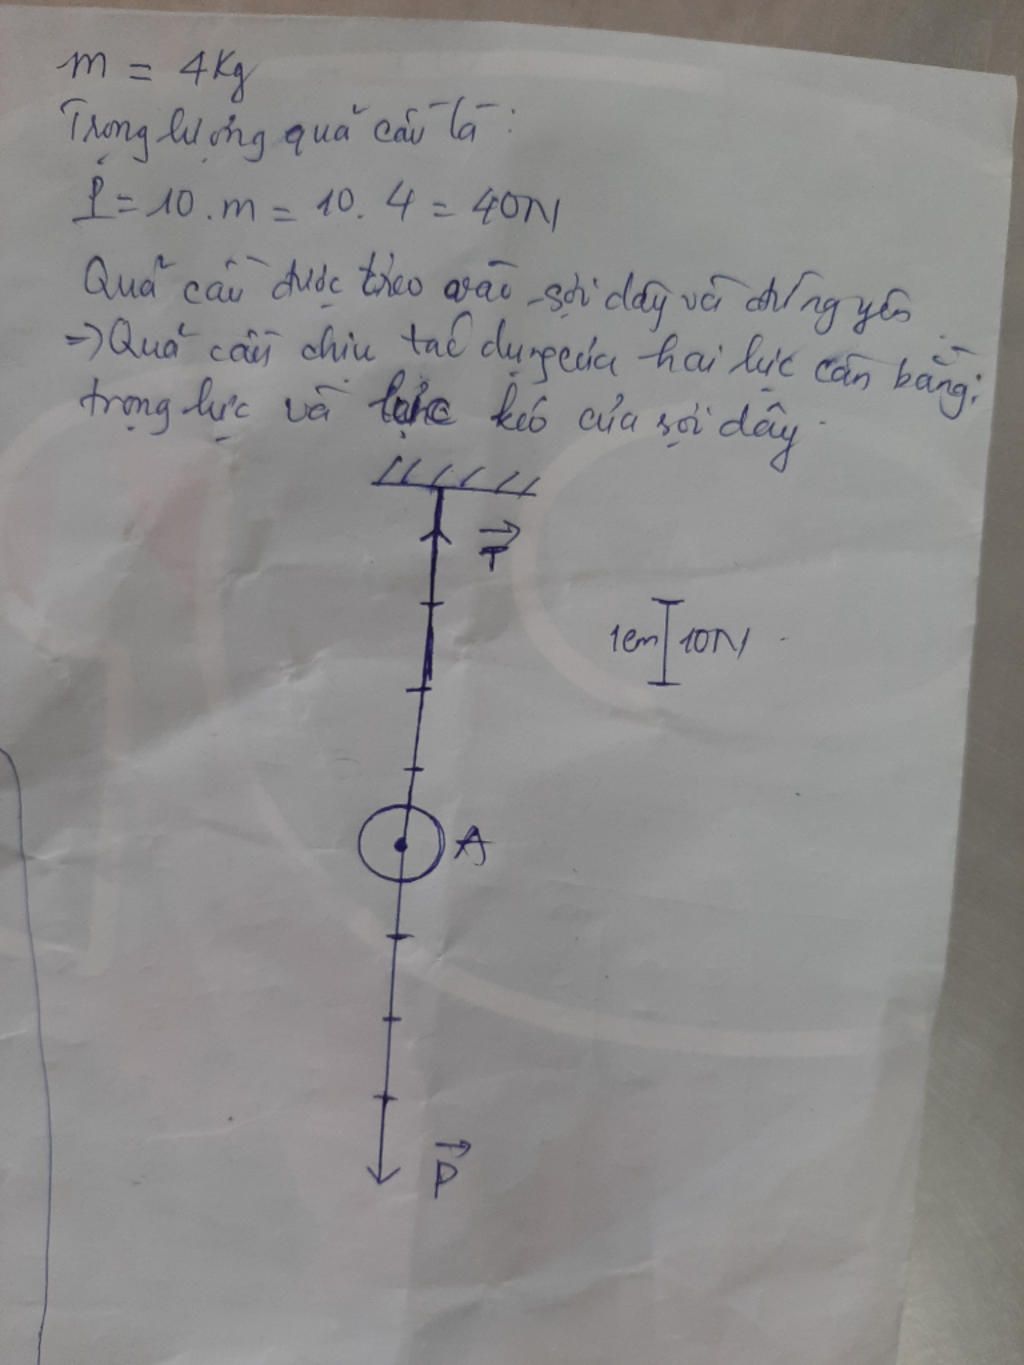 m = 4Kg
Trọng lượng quả cầu là:
P = 10.m = 10. 4 = 40N
Quả cầu được treo vào sợi dây và đứng yên
=> Quả cầu chịu tác dụng của hai lực cân bằng:
trọng lực và lực kéo của sợi dây.
T
1cm 10N
A
P